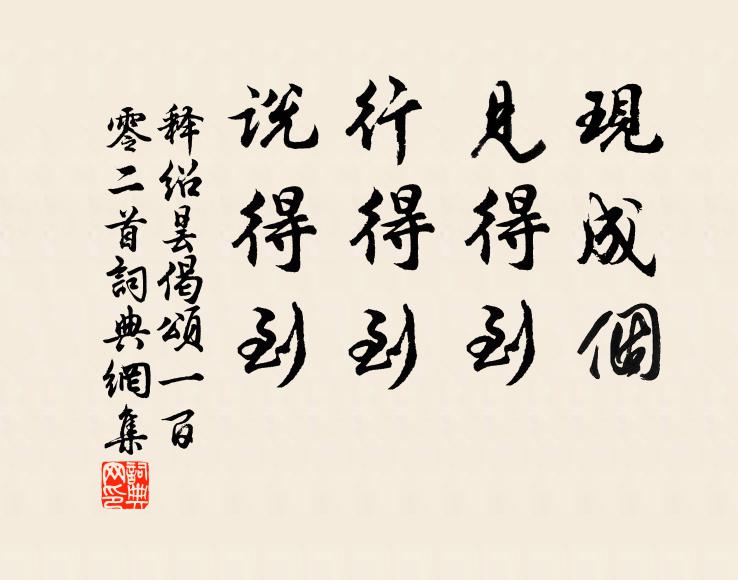 現成個
見得到
行得到
说得到
释绍昙偈頌一百
零二首詞典網集
詞典网印